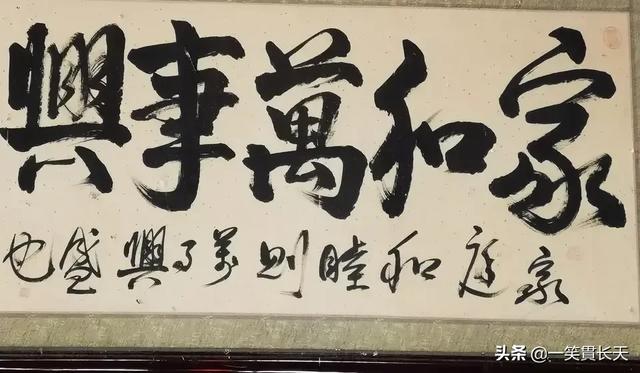 家和萬事興
家庭和睦則萬事興盛也
头条 @一笑貫长天